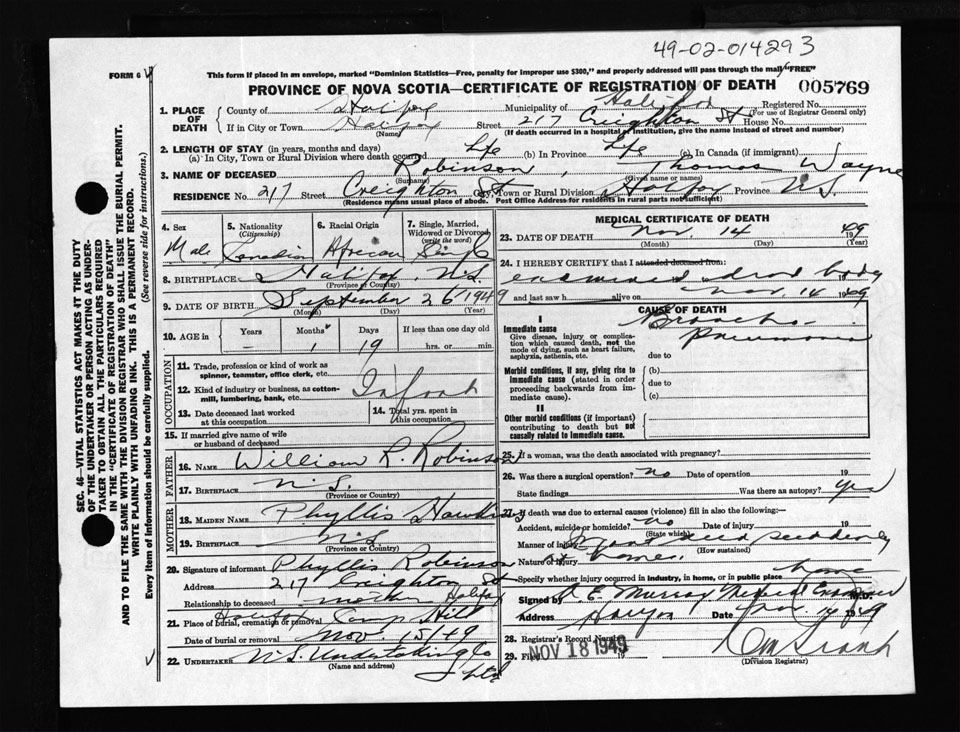 49-02-014293
FORM 6
This form if placed in an envelope, marked "Dominion Statistics—Free, penalty for improper use $300," and properly addressed will pass through the mail "FREE"
PROVINCE OF NOVA SCOTIA—CERTIFICATE OF REGISTRATION OF DEATH 005769
1. PLACE OF DEATH
County of Halifax Municipality of Halifax Registered No.
(For use of Registrar General only)
If in City or Town Halifax Street 217 Creighton St House No.
(Name) (If death occurred in a hospital or institution, give the name instead of street and number)
2. LENGTH OF STAY (in years, months and days)
(a) In City, Town or Rural Division where death occurred Life (b) In Province Life (c) In Canada (if immigrant)
3. NAME OF DECEASED Robinson, Thomas Wayne
(Surname) (Given name or names)
RESIDENCE No. 217 Street Creighton St City, Town or Rural Division Halifax Province N.S.
(Residence means usual place of abode. Post Office Address for residents in rural parts not sufficient)
4. Sex
Male
5. Nationality
(Citizenship)
Canadian
6. Racial Origin
African
7. Single, Married, Widowed or Divorced
(write the word)
Single
8. BIRTHPLACE Halifax, N.S.
(Province or Country)
9. DATE OF BIRTH September 26 1949
(Month) (Day) (Year)
10. AGE in
Years Months Days If less than one day old
— 1 19 hrs. or min.
OCCUPATION
11. Trade, profession or kind of work as spinner, teamster, office clerk, etc.
12. Kind of industry or business, as cotton-mill, lumbering, bank, etc.
Infant
13. Date deceased last worked at this occupation
14. Total yrs. spent in this occupation
15. If married give name of wife or husband of deceased
FATHER
16. NAME William R. Robinson
17. BIRTHPLACE N.S.
(Province or Country)
MOTHER
18. MAIDEN NAME Phyllis Hawkins
19. BIRTHPLACE N.S.
(Province or Country)
20. Signature of informant Phyllis Robinson
Address 217 Creighton St
Halifax
Relationship to deceased mother
21. Place of burial, cremation or removal Camp Hill
Date of burial or removal Nov 15/49
22. UNDERTAKER N.S. Undertaking Co
Ltd
(Name and address)
MEDICAL CERTIFICATE OF DEATH
23. DATE OF DEATH Nov. 14 1949
(Month) (Day) (Year)
24. I HEREBY CERTIFY that I attended deceased from:
examined dead body
and last saw h alive on Nov 14 1949
CAUSE OF DEATH
I
Immediate cause
Give disease, injury or complication which caused death, not the mode of dying, such as heart failure, asphyxia, asthenia, etc.
Broncho
pneumonia
due to
Morbid conditions, if any, giving rise to immediate cause (stated in order proceeding backwards from immediate cause).
(b)
due to
(c)
II
Other morbid conditions (if important) contributing to death but not causally related to immediate cause.
25. If a woman, was the death associated with pregnancy?
26. Was there a surgical operation? no Date of operation 19
State findings Was there an autopsy? Yes
27. If death was due to external causes (violence) fill in also the following:
Accident, suicide or homicide? no Date of injury 19
(State which)
Manner of injury Infant died suddenly
(How sustained)
Nature of injury at home.
Specify whether injury occurred in industry, in home, or in public place home
Signed by A. E. Murray Medical Examiner M.D.
Address Date Nov. 14 1949
28. Registrar's Record Number
29. Filed NOV 18 1949 19
(Division Registrar)
SEC. 46—VITAL STATISTICS ACT MAKES IT THE DUTY
OF THE UNDERTAKER OR PERSON ACTING AS UNDER-
TAKER TO OBTAIN ALL THE PARTICULARS REQUIRED
IN THE "CERTIFICATE OF REGISTRATION OF DEATH"
AND TO FILE THE SAME WITH THE DIVISION REGISTRAR WHO SHALL ISSUE THE BURIAL PERMIT.
WRITE PLAINLY WITH UNFADING INK. THIS IS A PERMANENT RECORD.
Every item of information should be carefully supplied. (See reverse side for instructions.)